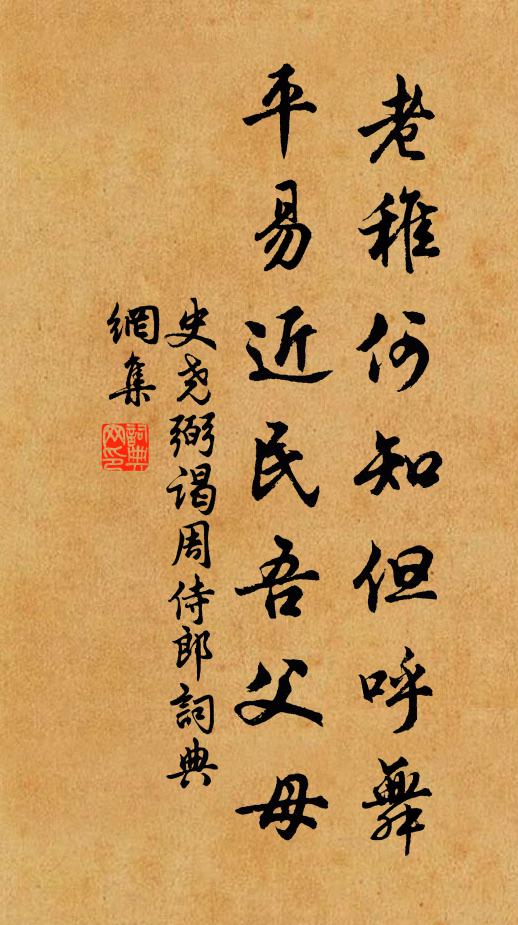 老稚何知但呼舞
平易近民吾父母
史尧弼谒周侍郎詞典
網集
詞典網印